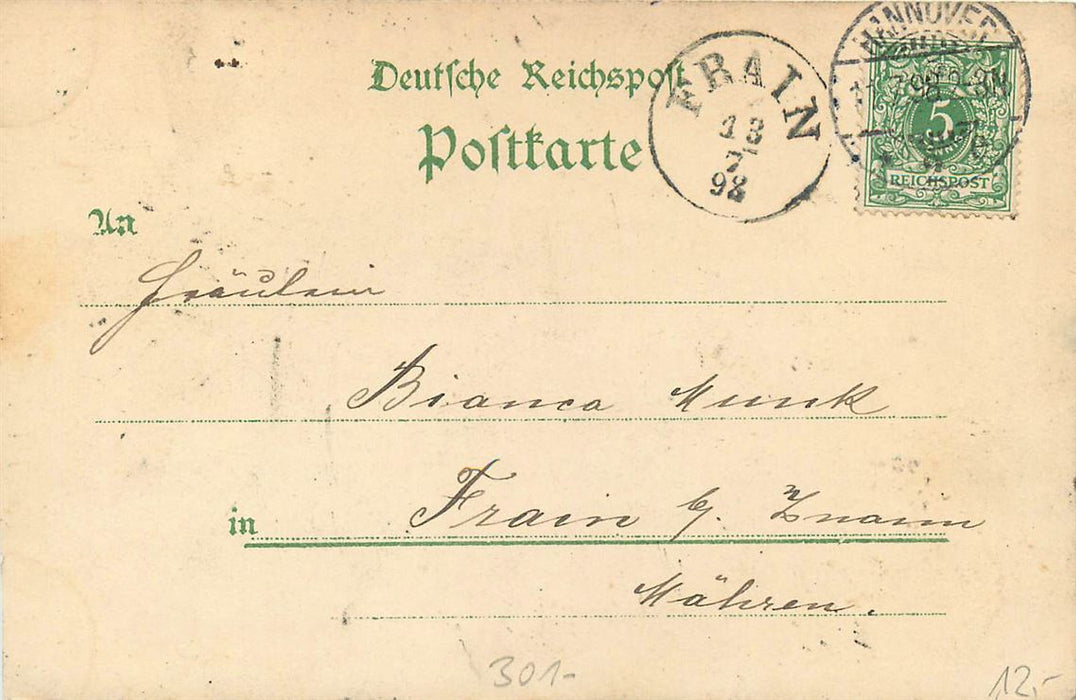 Deutsche Reichspost
Postkarte
FRAIN
13
7
98
HANNOVER
98
5
REICHSPOST
An
Fräulein
Bianca Munk
in Frain b/. Znaim
Mähren.
301-
12.-